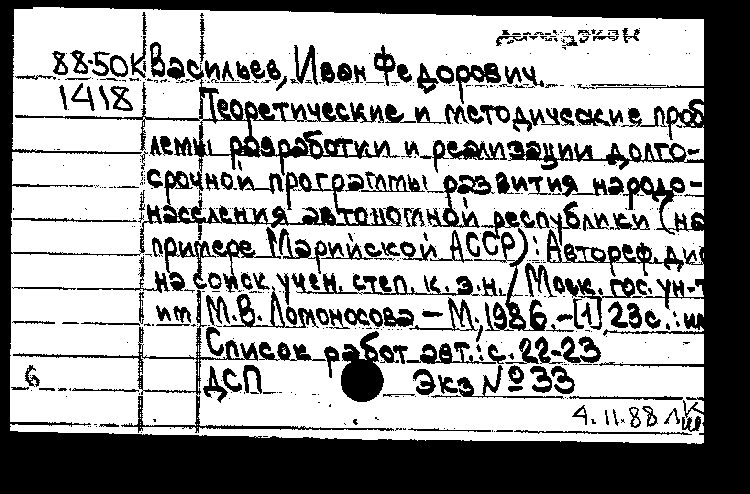 88-50К Васильев, Иван Федорович.
1418 Теоретические и методические проб
лемы разработки и реализации долго-
срочной программы развития народо-
населения автономной республики (на
примере Марийской АССР): Автореф. дис
на соиск. учен. степ. к. э. н. / Моск. гос. ун-т
им М.В. Ломоносова - М, 1986. - [1], 23 с. : ил
Список работ авт.: с. 22-23
6 ДСП Экз № 33
4.11.88